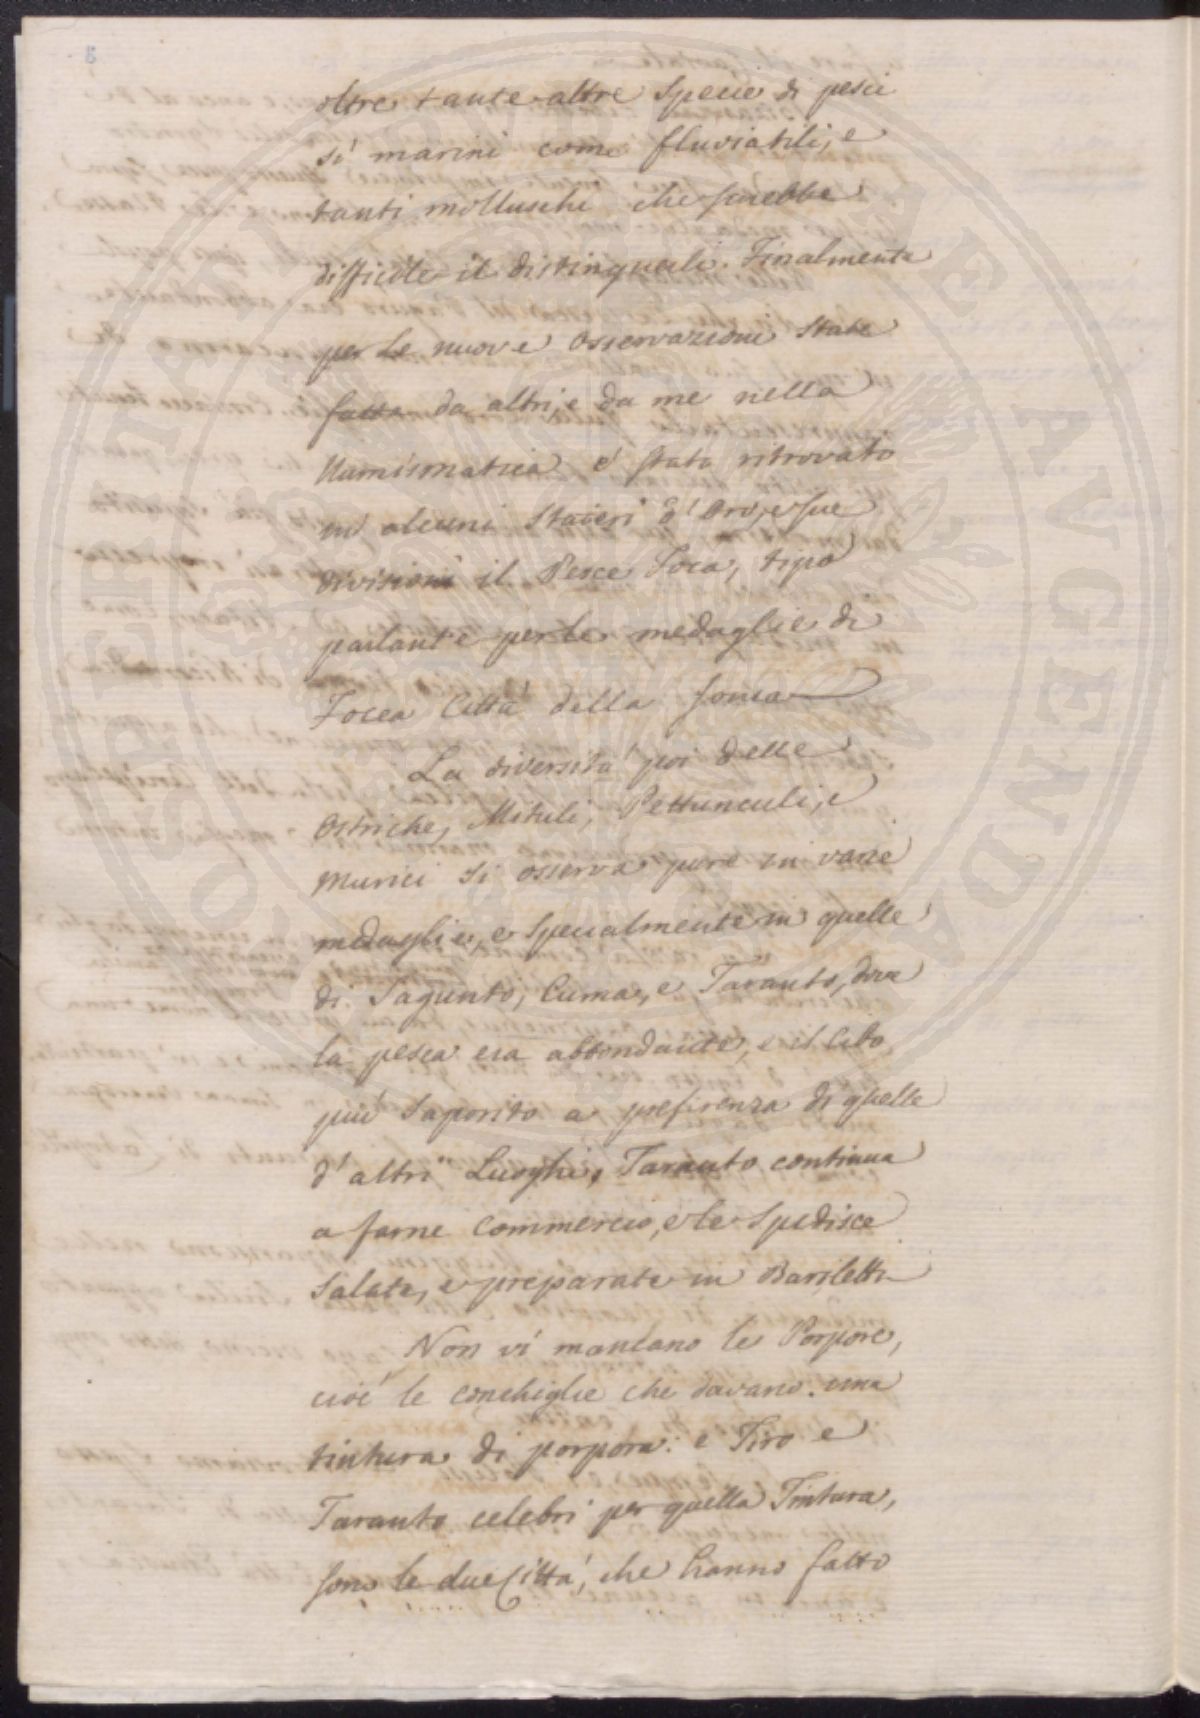 oltre tante altre Specie di pesci
sì marini come fluviatili, e
tanti molluschi che sarebbe
difficile il distinguerli. Finalmente
per le nuove osservazioni State
fatte da altri, e da me nella
Numismatica è stato ritrovato
in alcuni Stateri d'Oro, e sue
divisioni il Pesce Foca, tipo
parlante per le medaglie di
Focea Città della Jonia
La diversità poi delle
Ostriche, Mituli, Pettunculi, e
Murici si osserva pure in varie
medaglie, e Specialmente in quelle
di Sagunto, Cuma, e Taranto, dove
la pesca era abbondante, e il Cibo
più Saporito a preferenza di quelle
d'altri Luoghi, Taranto continua
a farne Commercio, e le Spedisce
Salate, e preparate in Bariletti
Non vi mancano le Porpore,
cioè le conchiglie che davano una
tintura di porpora: e Tiro e
Taranto celebri per quella Tintura,
sono le due Città, che hanno fatto